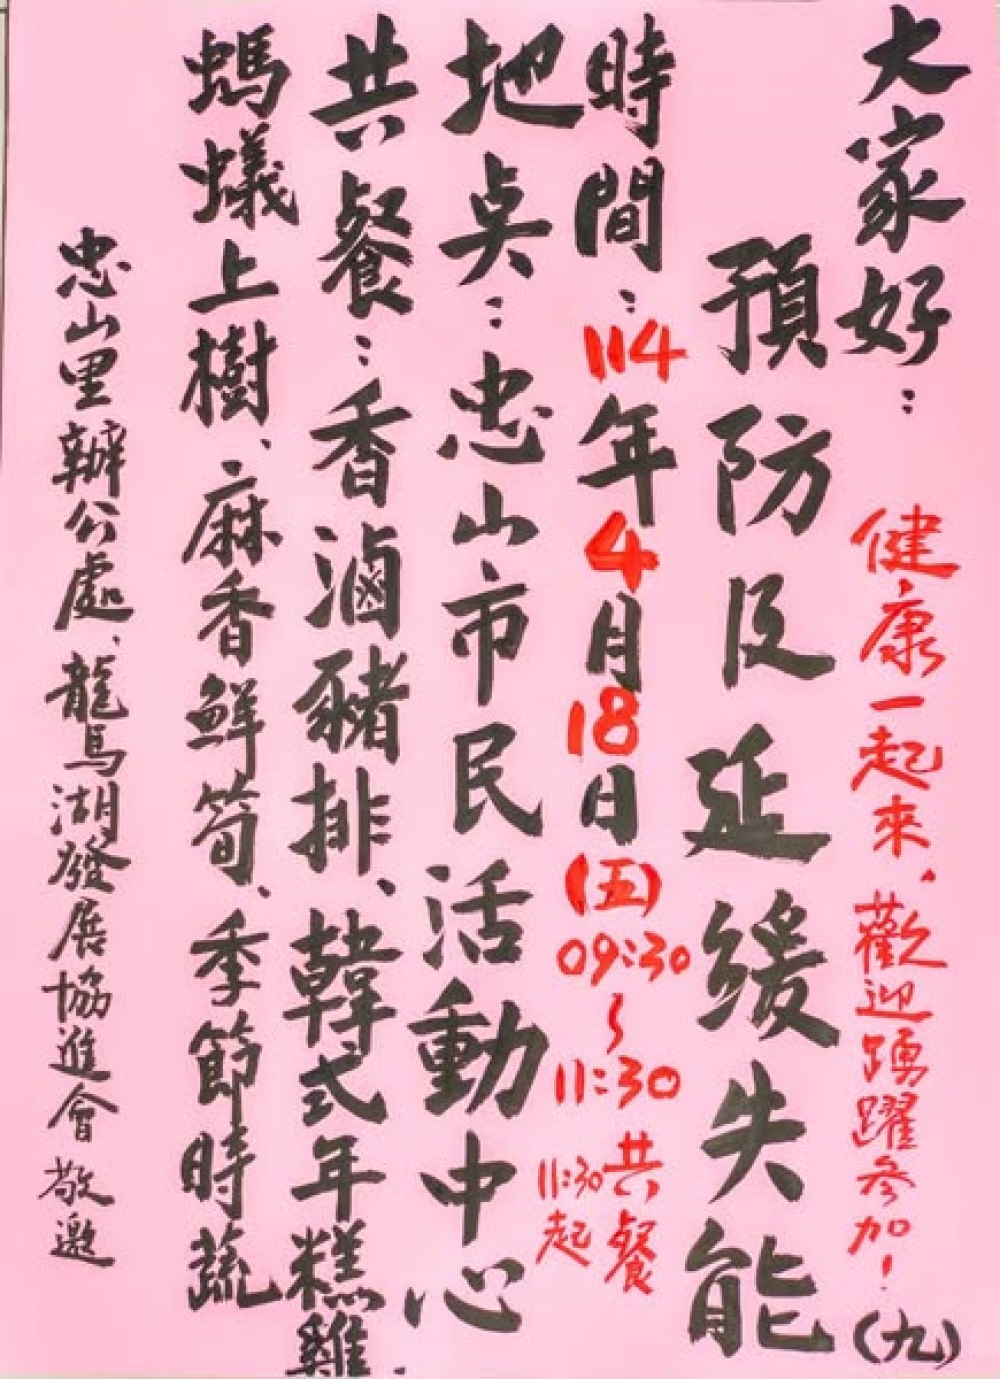 大家好：健康一起來，歡迎踴躍參加！(九)
預防及延緩失能
時間：114年4月18日(五)09:30~11:30共餐11:30起
地奌：忠山市民活動中心
共餐：香滷豬排、韓式年糕雞、
螞蟻上樹、麻香鮮筍、季節時蔬
忠山里辦公處、龍馬湖發展協進會 敬邀